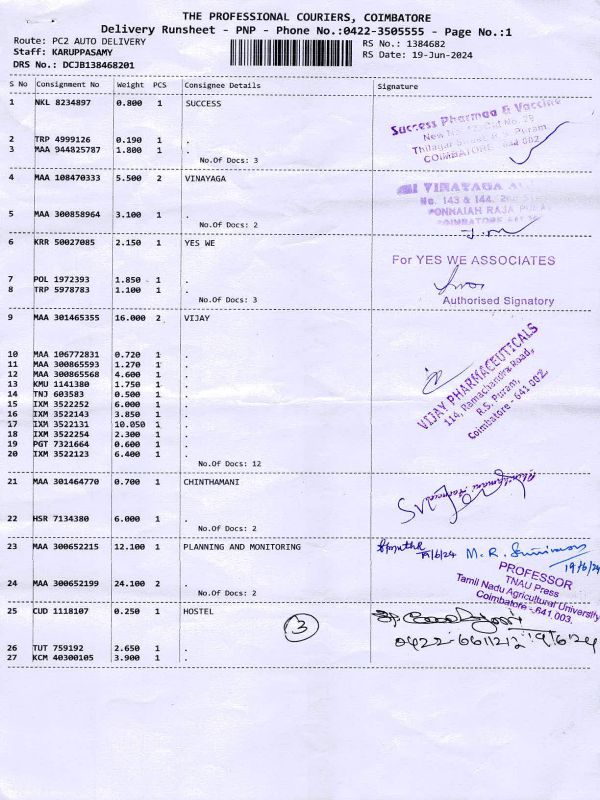 THE PROFESSIONAL COURIERS, COIMBATORE
Delivery Runsheet - PNP - Phone No.:0422-3505555 - Page No.:1
Route: PC2 AUTO DELIVERY
RS No.: 1384682
Staff: KARUPPASAMY
RS Date: 19-Jun-2024
DRS No.: DCJB138468201
S No Consignment No Weight PCS Consignee Details Signature
1 NKL 8234897 0.800 1 SUCCESS
Success Pharmaa & Vaccine
COIMBATORE - 641 002
2 TRP 4999126 0.190 1 .
3 MAA 944825787 1.800 1 .
No.Of Docs: 3
4 MAA 108470333 5.500 2 VINAYAGA
VINAYAGA
No. 143 & 144,
PONNAIAH RAJA
5 MAA 300858964 3.100 1 .
No.Of Docs: 2
6 KRR 50027085 2.150 1 YES WE
For YES WE ASSOCIATES
Authorised Signatory
7 POL 1972393 1.850 1 .
8 TRP 5978783 1.100 1 .
No.Of Docs: 3
9 MAA 301465355 16.000 2 VIJAY
VIJAY PHARMACEUTICALS
114, Ramachandra Road,
R.S. Puram,
Coimbatore - 641 002
10 MAA 106772831 0.720 1 .
11 MAA 300865593 1.270 1 .
12 MAA 300865568 4.600 1 .
13 KMU 1141380 1.750 1 .
14 TNJ 603583 0.500 1 .
15 IXM 3522252 6.000 1 .
16 IXM 3522143 3.850 1 .
17 IXM 3522131 10.050 1 .
18 IXM 3522254 2.300 1 .
19 PGT 7321664 0.600 1 .
20 IXM 3522123 6.400 1 .
No.Of Docs: 12
21 MAA 301464770 0.700 1 CHINTHAMANI
22 HSR 7134380 6.000 1 .
No.Of Docs: 2
23 MAA 300652215 12.100 1 PLANNING AND MONITORING
19/6/24 M.R. 
19/6/24
PROFESSOR
TNAU Press
Tamil Nadu Agricultural University
Coimbatore - 641 003.
24 MAA 300652199 24.100 2 .
No.Of Docs: 2
25 CUD 1118107 0.250 1 HOSTEL
3
0422-6611212 19/6/24
26 TUT 759192 2.650 1 .
27 KCM 40300105 3.900 1 .